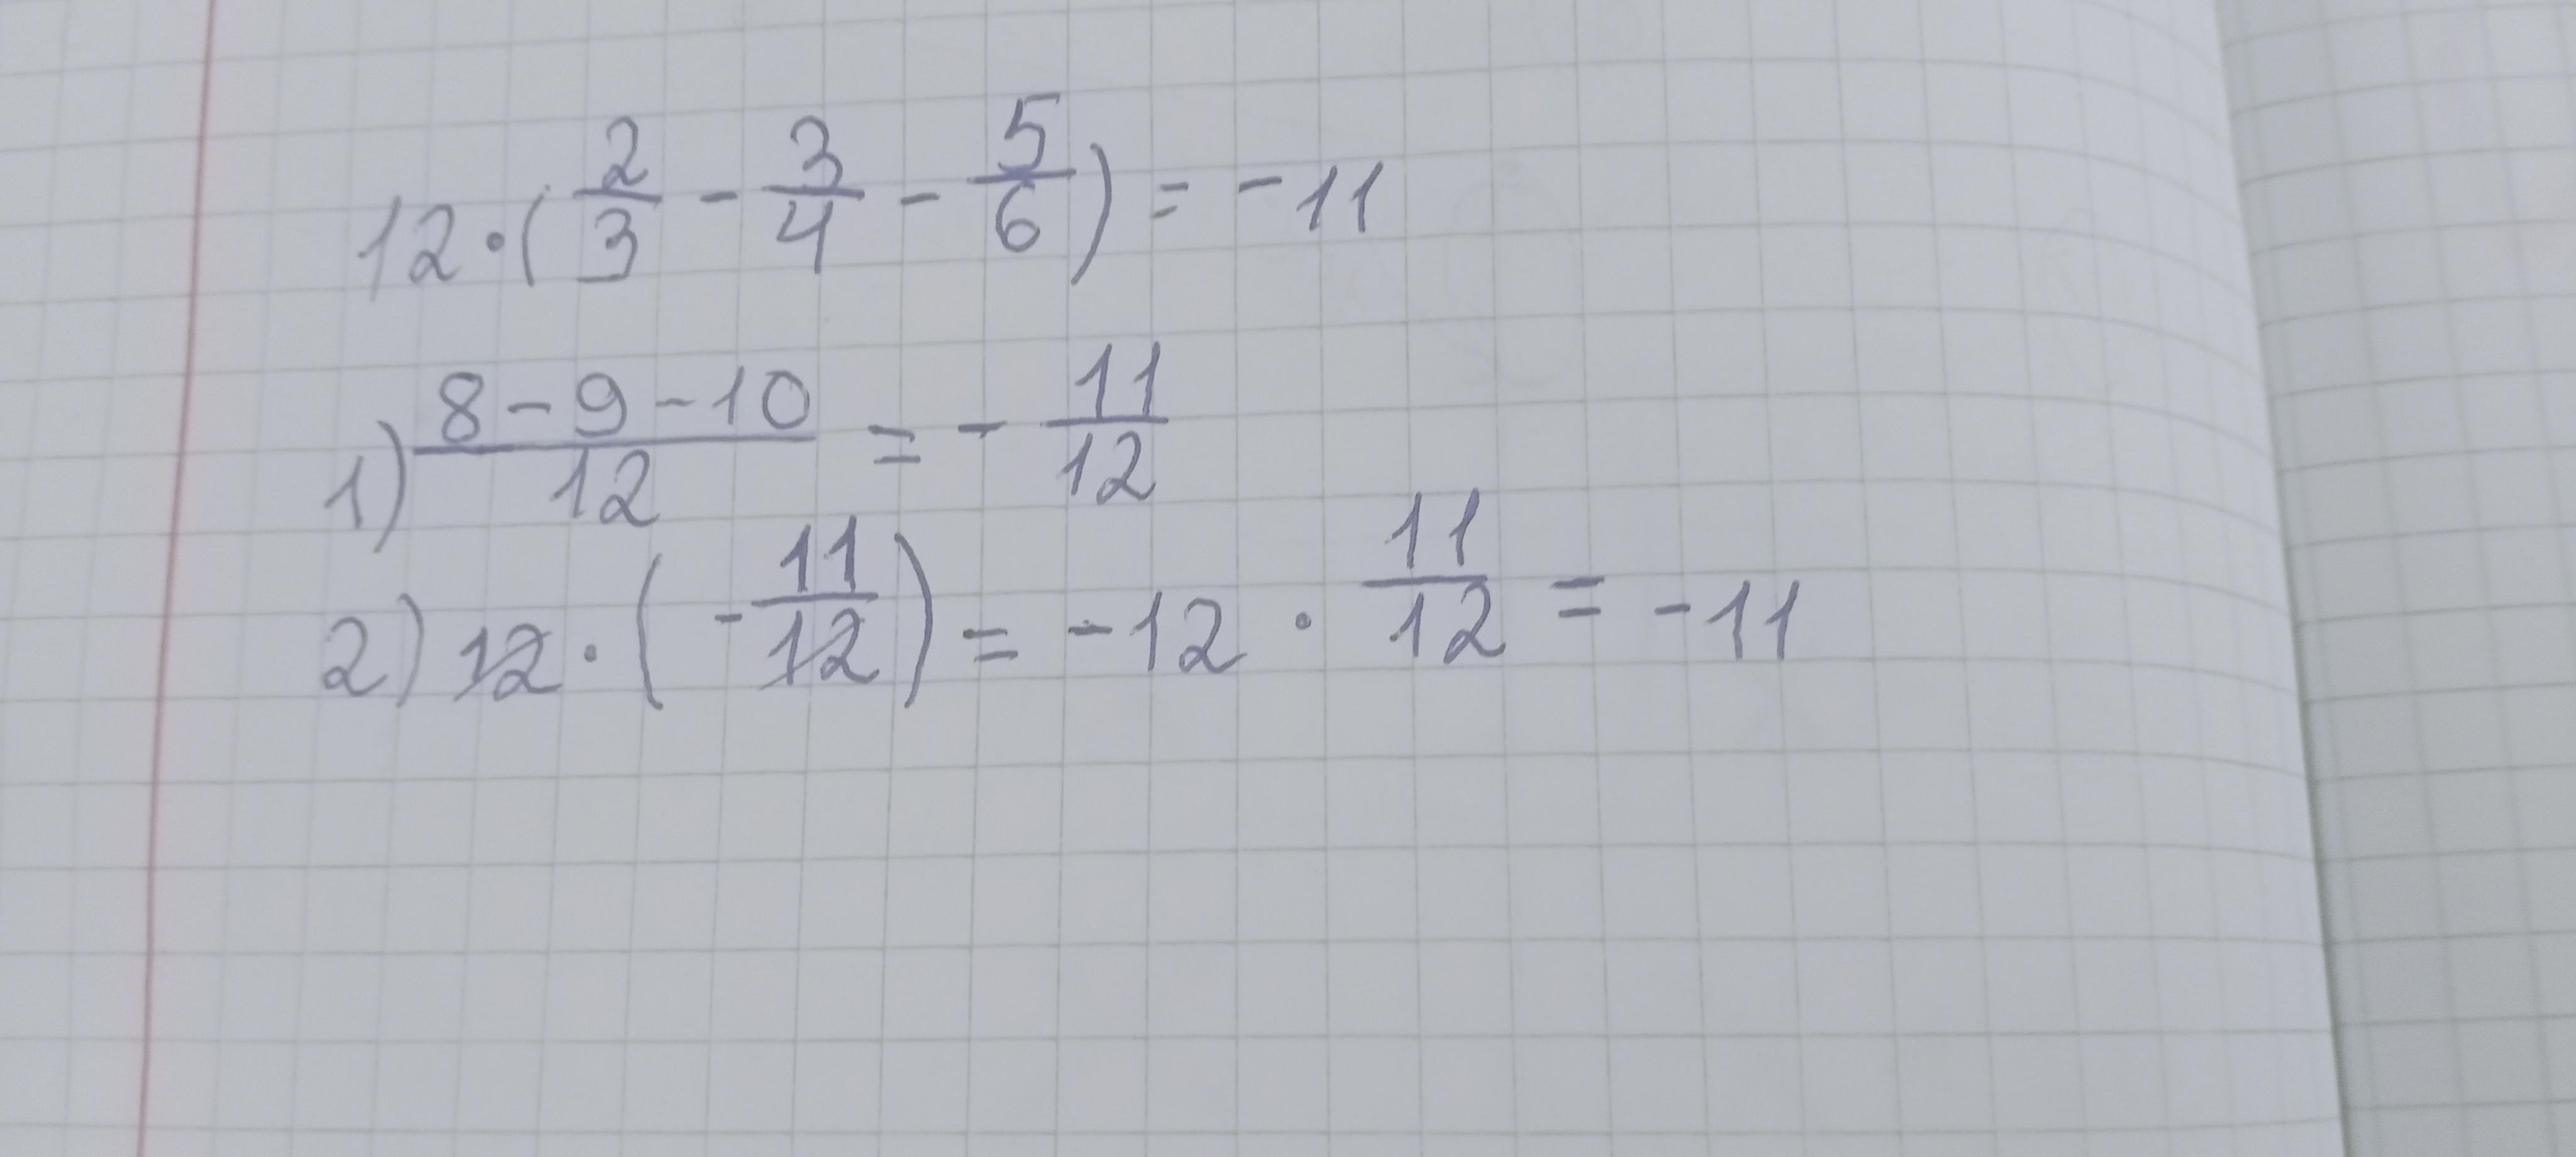 12 · (2/3 - 3/4 - 5/6) = -11
1) (8 - 9 - 10)/12 = - 11/12
2) 12 · (- 11/12) = -12 · 11/12 = -11